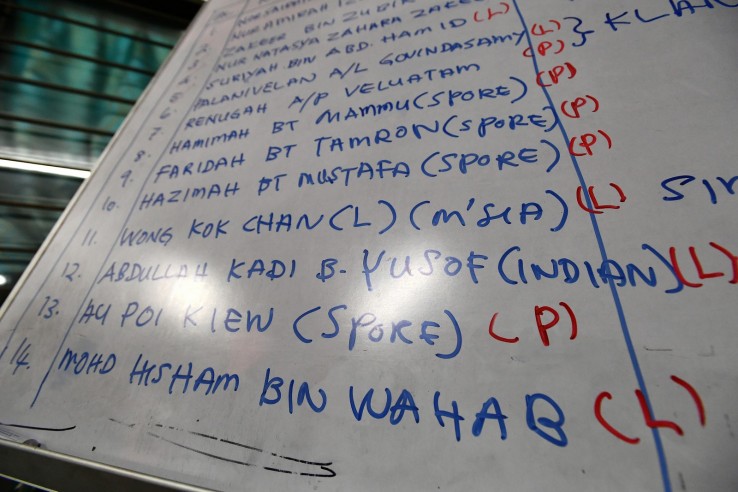 2. NUR AMIRAH
3. ZABEER BIN ZUBIR
4. NUR NATASYA ZAHARA (L)
5. SURIYAH BIN ABD. HAMID (L)
6. PALANIVELAN A/L GOVINDASAMY (L) } KLAN
7. RENUGAH A/P VELUATAM (P)
8. HAMIMAH BT MAMMU (SPORE) (P)
9. FARIDAH BT TAMRON (SPORE) (P)
10. HAZIMAH BT MUSTAFA (SPORE) (P)
11. WONG KOK CHAN (L) (M'SIA) (L) SIN
12. ABDULLAH KADI B. YUSOF (INDIAN) (L)
13. AU POI KIEW (SPORE) (P)
14. MOHD HISHAM BIN WAHAB (L)